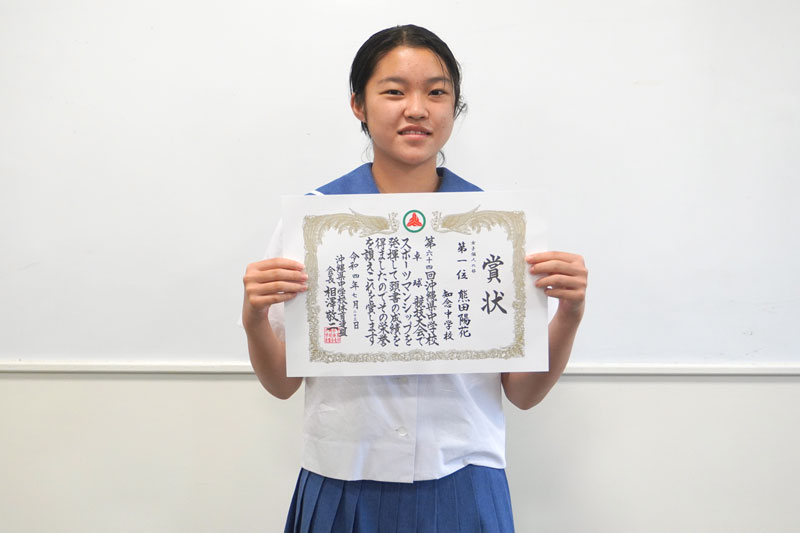 賞状
第一位 熊田陽花
知念中学校
第六十四回沖縄県中学校
卓球競技大会で
スポーツマンシップを
発揮して頭書の成績を
得ましたのでその栄誉
を讃えこれを賞します
令和四年七月 日
沖縄県中学校体育連盟
会長 相澤敬一